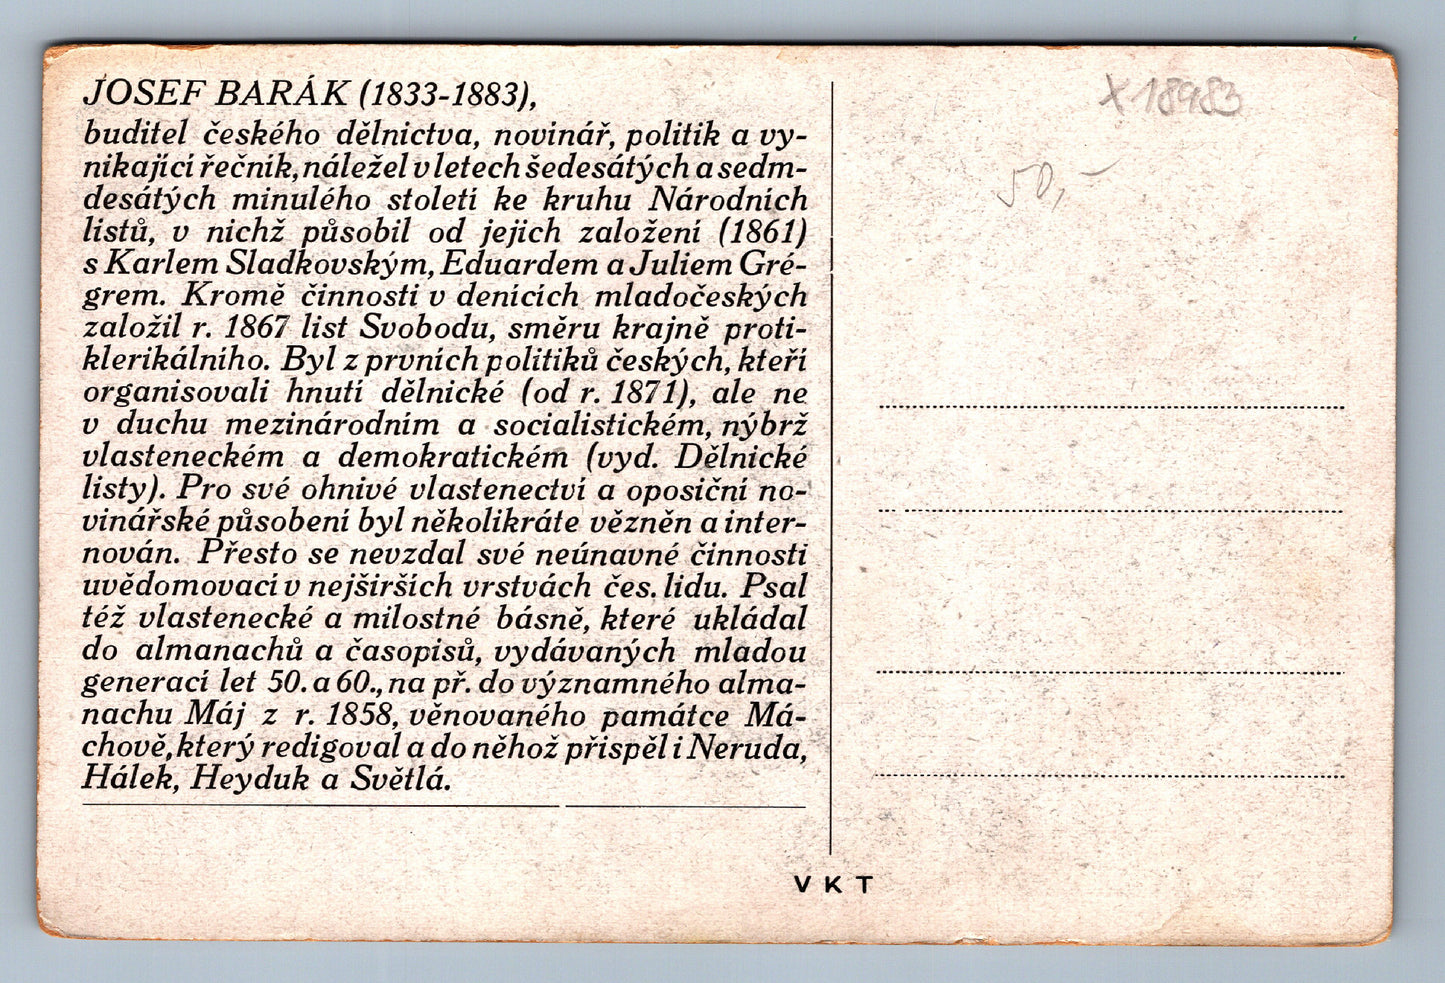 JOSEF BARÁK (1833-1883),
buditel českého dělnictva, novinář, politik a vy-
nikající řečník, náležel v letech šedesátých a sedm-
desátých minulého století ke kruhu Národních
listů, v nichž působil od jejich založení (1861)
s Karlem Sladkovským, Eduardem a Juliem Gré-
grem. Kromě činnosti v denících mladočeských
založil r. 1867 list Svobodu, směru krajně proti-
klerikálního. Byl z prvních politiků českých, kteří
organisovali hnutí dělnické (od r. 1871), ale ne
v duchu mezinárodním a socialistickém, nýbrž
vlasteneckém a demokratickém (vyd. Dělnické
listy). Pro své ohnivé vlastenectví a oposiční no-
vinářské působení byl několikráte vězněn a inter-
nován. Přesto se nevzdal své neúnavné činnosti
uvědomovací v nejširších vrstvách čes. lidu. Psal
též vlastenecké a milostné básně, které ukládal
do almanachů a časopisů, vydávaných mladou
generací let 50. a 60., na př. do významného alma-
nachu Máj z r. 1858, věnovaného památce Má-
chově, který redigoval a do něhož přispěl i Neruda,
Hálek, Heyduk a Světlá.
X18983
50,-
V K T